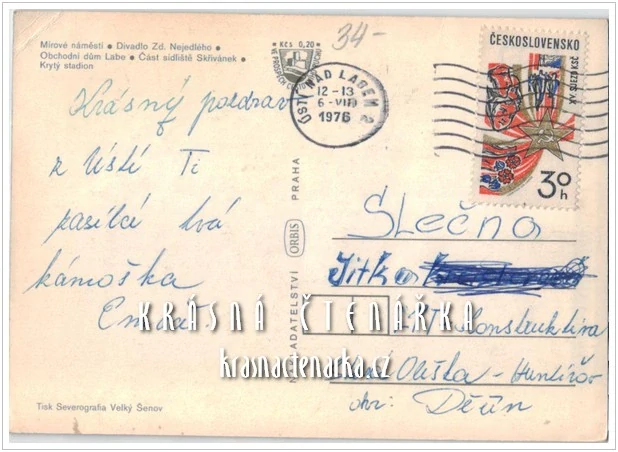 Mírové náměstí • Divadlo Zd. Nejedlého •
Obchodní dům Labe • Část sídliště Skřivánek •
Krytý stadion
Kčs 0,20
34-
ÚSTÍ NAD LABEM 2
12-13
6.-VII
1976
ČESKOSLOVENSKO
XV. SJEZD KSČ
30 h
Krásný pozdrav
z Ústí Ti
posílá tvá
kámoška
NAKLADATELSTVÍ ORBIS PRAHA
Slečna
Jitka
Konstruktiva
Huntířov
okr. Děčín
KRÁSNÁ ČTENÁŘKA
krasnactenarka.cz
Tisk Severografia Velký Šenov